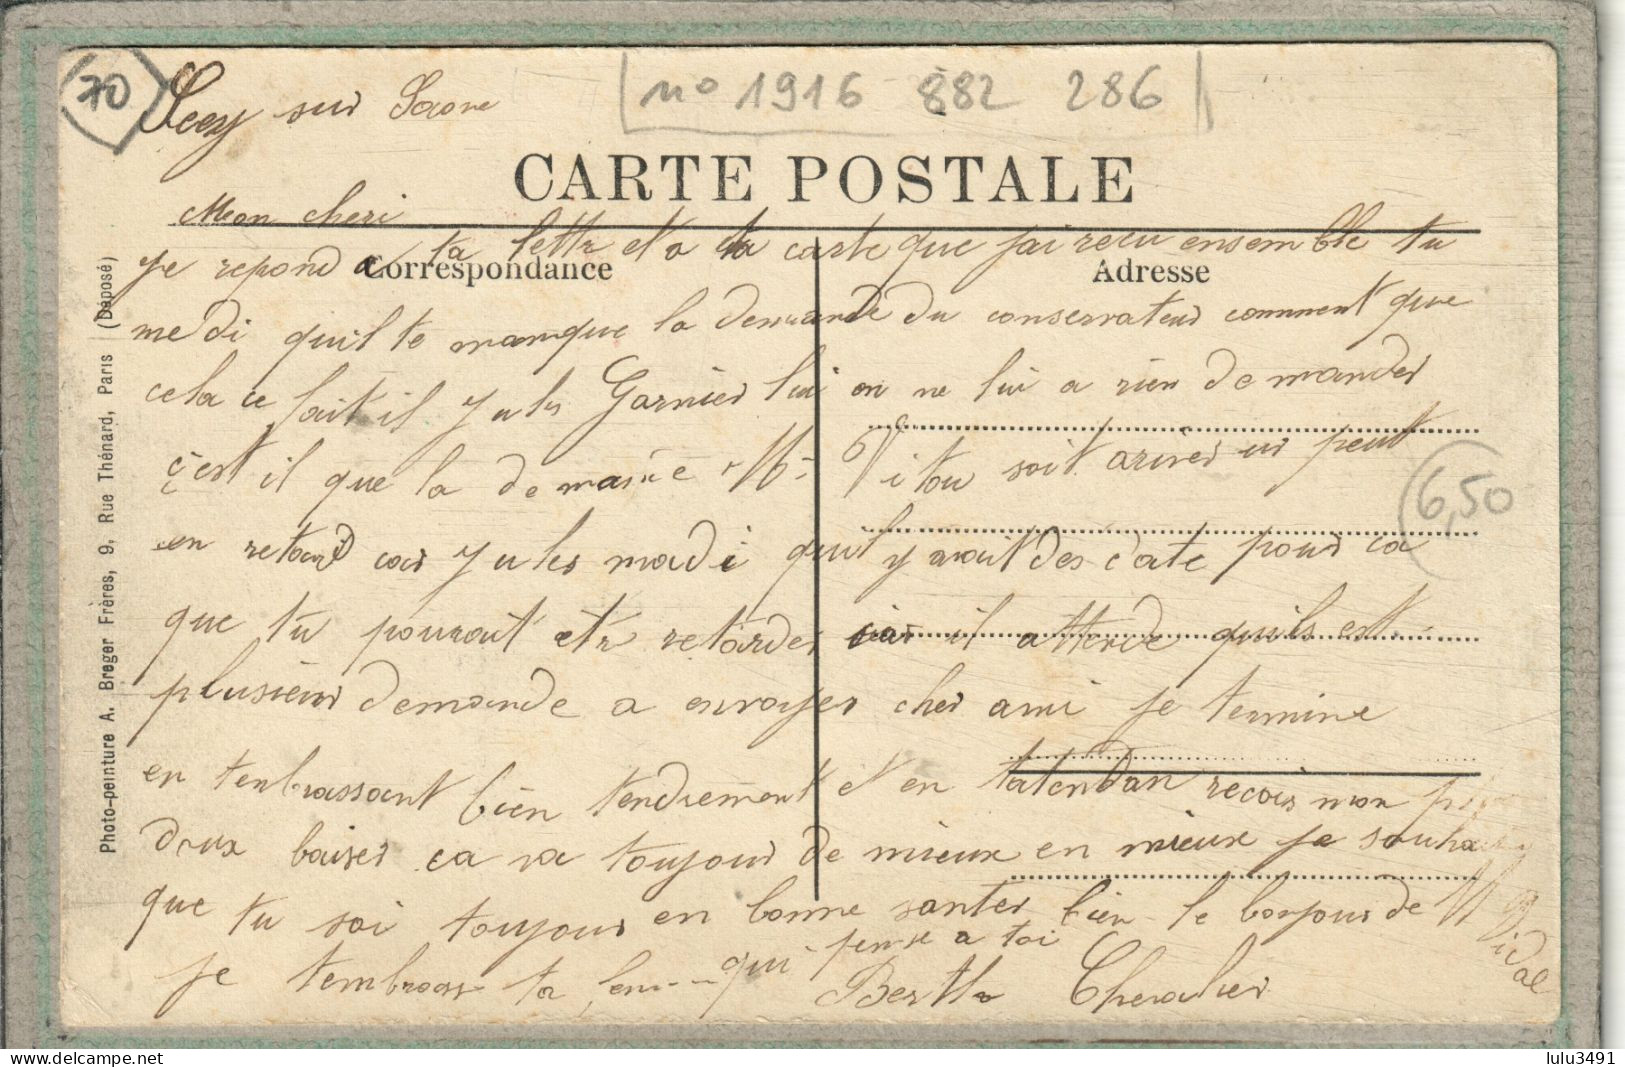 70
Scey sur Saone
no 1916 882 286
CARTE POSTALE
Mon cheri
Je repond a ta lettr et a ta carte que jai recu ensemble tu
Correspondance
Adresse
me di quil te manque la demande du conservateur comment que
cela ce fait il Jules Garnier lui on ne lui a rien demander
c'est il que la demaine Mr Vitou soit ariver ur peut
6,50
en retard car Jules madi quil y avait des date pour ca
que tu pourrait etr retarder car il attende quils est
plusieur demande a envoyer cher ami je termine
en tenbrassant bien tendrement et en tatendan recois mon
deux baiser ca va toujour de mieux en mieux je
que tu soi toujour en bonne santer bien le bonjour de M Vidal
je tembrass ta qui pense a toi
Berthe Chevalier
Photo-peinture A. Breger Frères, 9, Rue Thénard, Paris (Déposé)
lulu3491